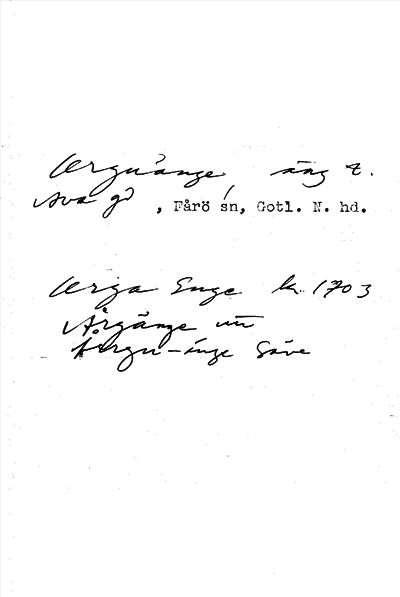 Arguänge, äng t.
Ava gd, Fårö sn, Gotl. N. hd.
Arga Enge k. 1703
Årgänge
Argu-änge Säve